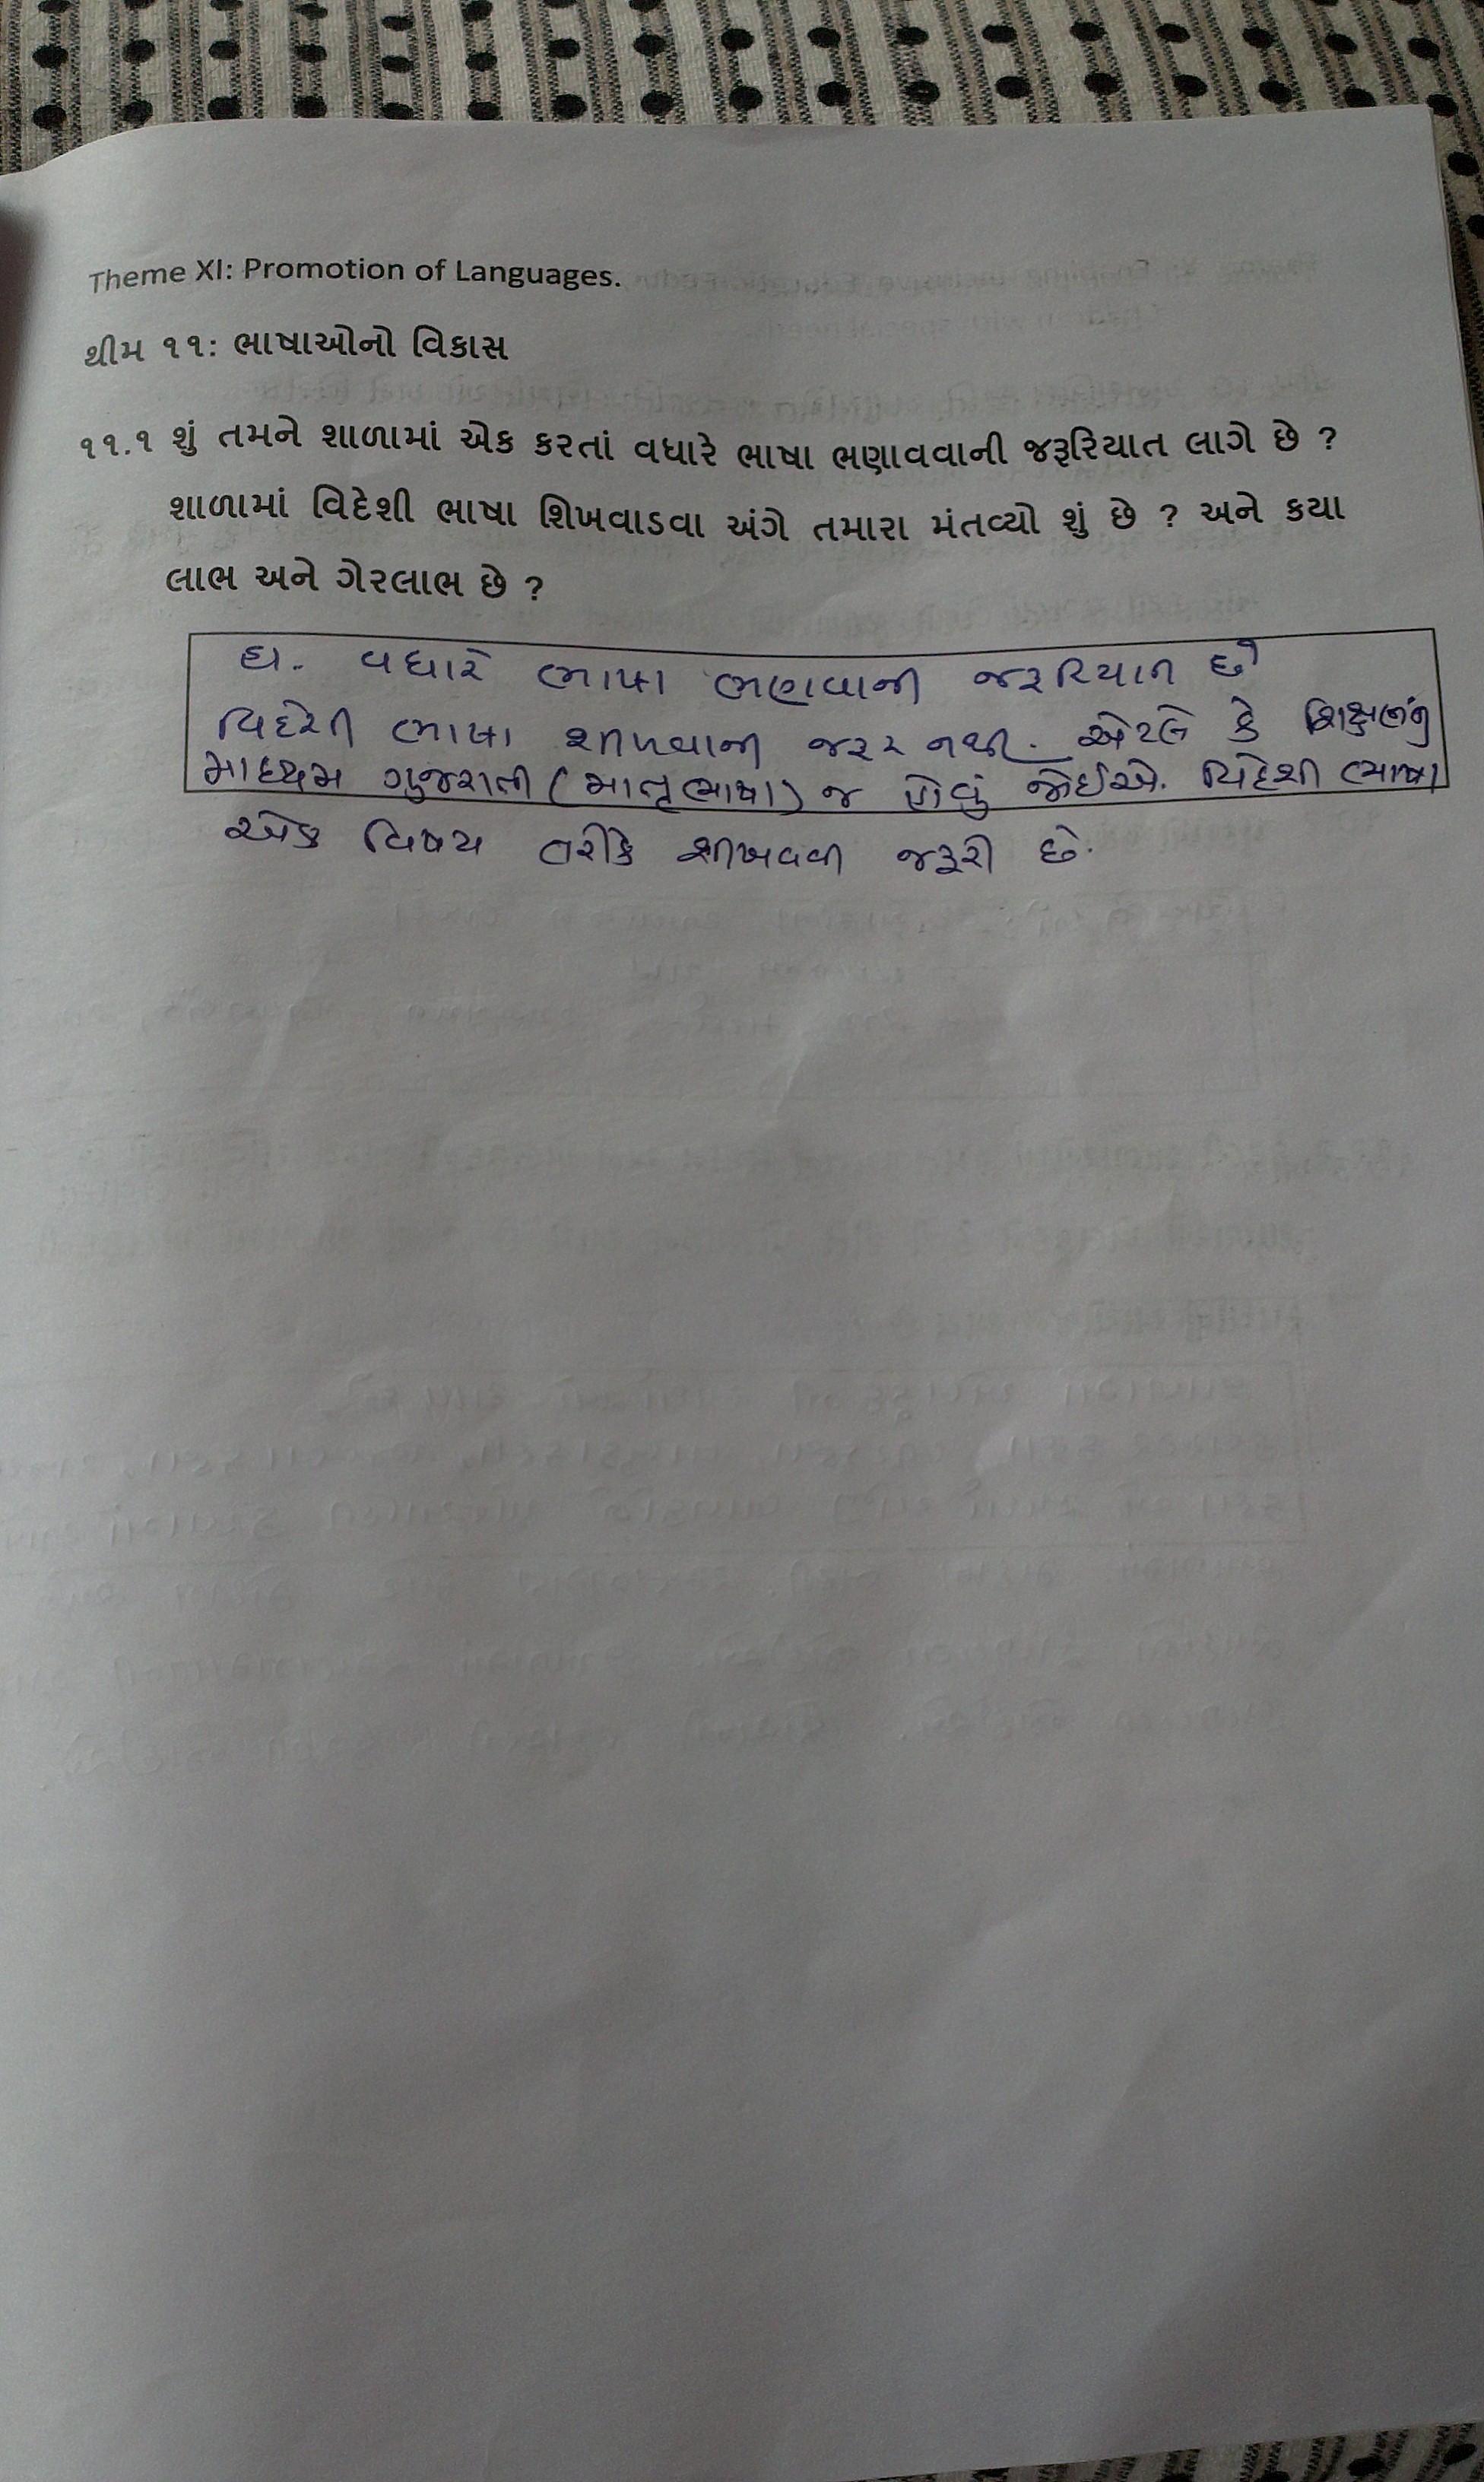 Theme XI: Promotion of Languages.
થીમ ૧૧: ભાષાઓનો વિકાસ
૧૧.૧ શું તમને શાળામાં એક કરતાં વધારે ભાષા ભણાવવાની જરૂરિયાત લાગે છે ?
શાળામાં વિદેશી ભાષા શિખવાડવા અંગે તમારા મંતવ્યો શું છે ? અને કયા
લાભ અને ગેરલાભ છે ?
હા. વધારે ભાષા ભણવાની જરૂરિયાત છે
વિદેશી ભાષા શીખવાની જરૂર નથી. એટલે કે શિક્ષણનું
માધ્યમ ગુજરાતી (માતૃભાષા) જ હોવું જોઈએ. વિદેશી ભાષા
એક વિષય તરીકે શીખવવી જરૂરી છે.